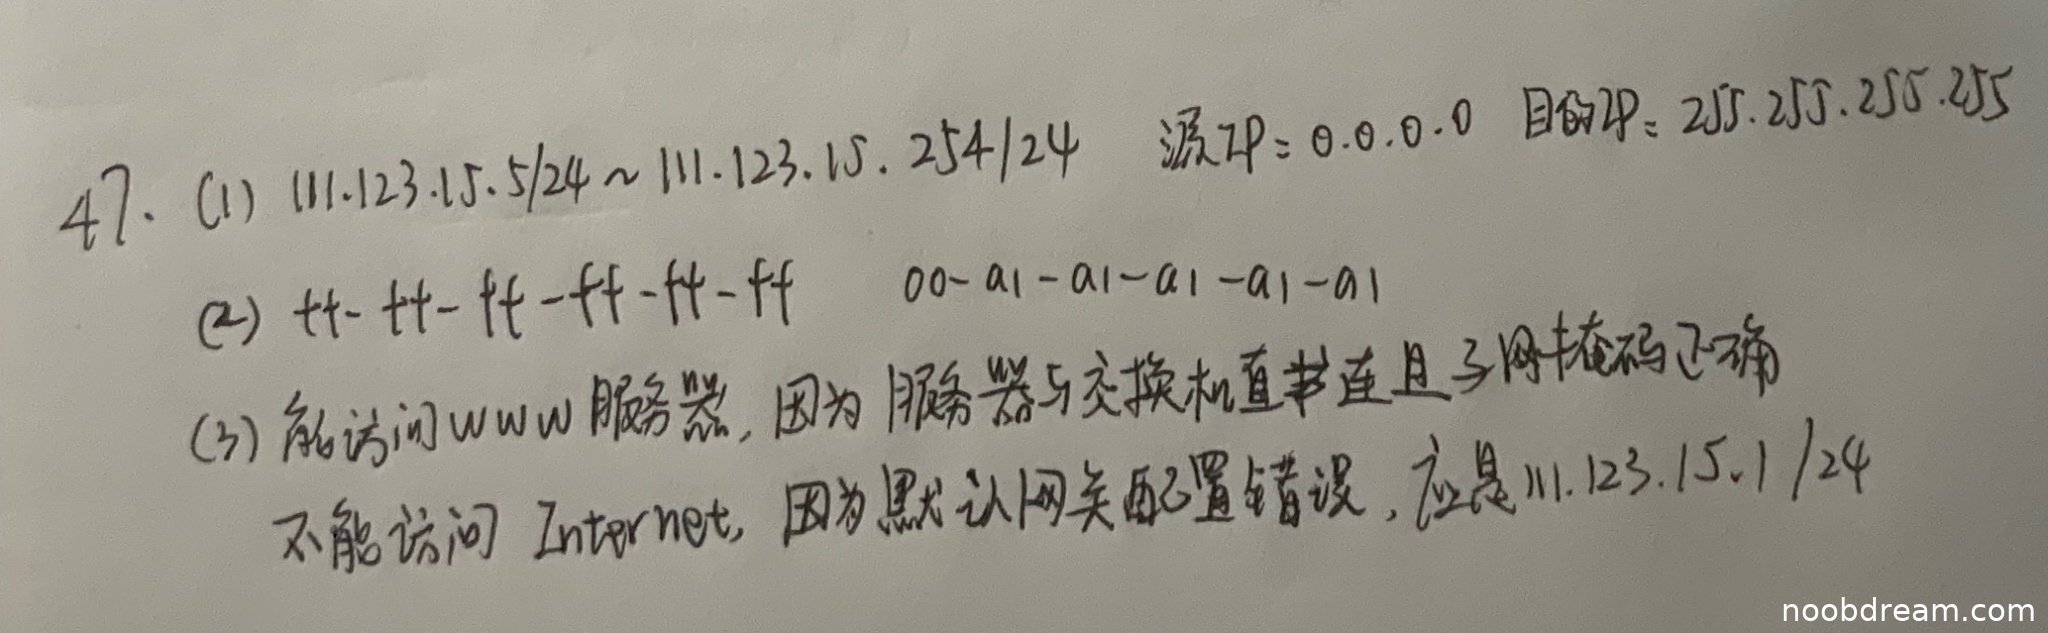 47. (1) 111.123.15.5/24 ~ 111.123.15.254/24 源IP = 0.0.0.0 目的IP = 255.255.255.255
(2) ff-ff-ff-ff-ff-ff 00-a1-a1-a1-a1-a1
(3) 能访问WWW服务器, 因为服务器与交换机直连且子网掩码正确
不能访问 Internet, 因为默认网关配置错误, 应是111.123.15.1/24
noobdream.com